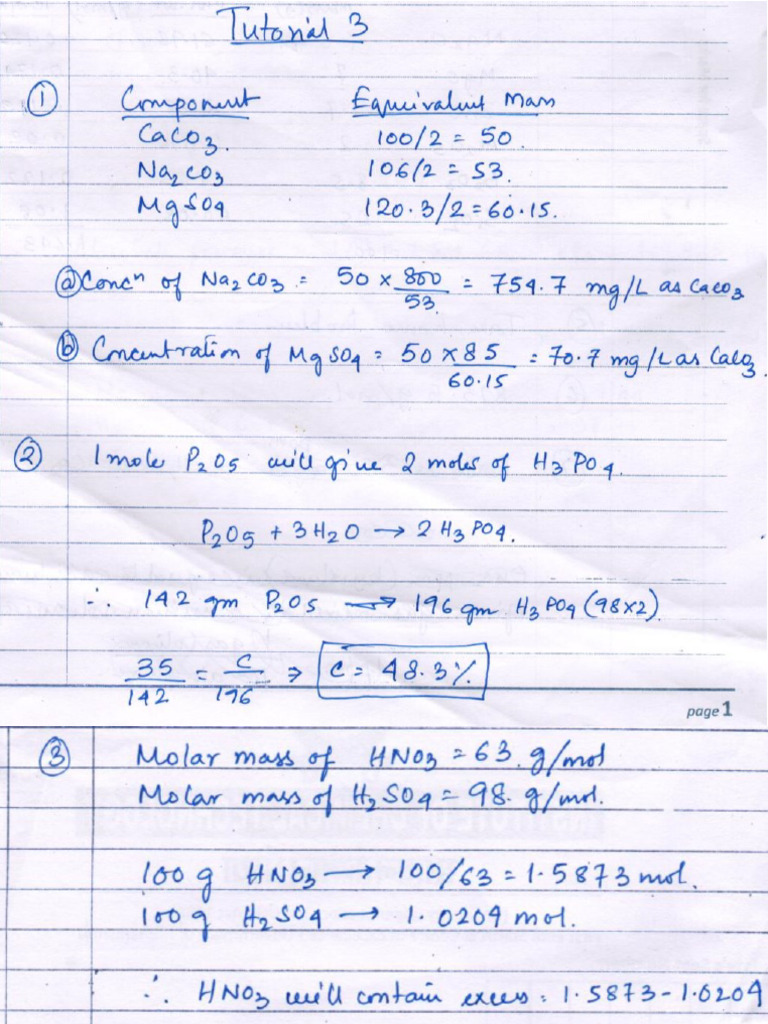 Tutorial 3
① Component Equivalent Mass
CaCO3. 100/2 = 50.
Na2CO3 106/2 = 53.
MgSO4 120.3/2 = 60.15.
ⓐ Concⁿ of Na2CO3 = 50 × 800/53 = 754.7 mg/L as CaCO3
ⓑ Concentration of MgSO4 = 50 × 85/60.15 = 70.7 mg/L as CaCO3.
② 1 mole P2O5 will give 2 moles of H3PO4.
P2O5 + 3H2O → 2H3PO4.
∴ 142 gm P2O5 → 196 gm H3PO4 (98×2).
35/142 = C/196 ⇒ C = 48.3%
page 1
③ Molar mass of HNO3 = 63. g/mol
Molar mass of H2SO4 = 98. g/mol.
100 g HNO3 → 100/63 = 1.5873 mol.
100 g H2SO4 → 1.0204 mol.
∴ HNO3 will contain excess = 1.5873 - 1.0204